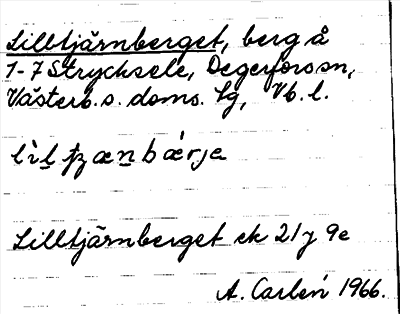 Lilltjärnberget, berg å
1-7 Strycksele, Degerfors sn,
Västerb. s. doms. lg, Vb. l.
Lilltjärnberget ek 21 J 9e
A. Carlén 1966.